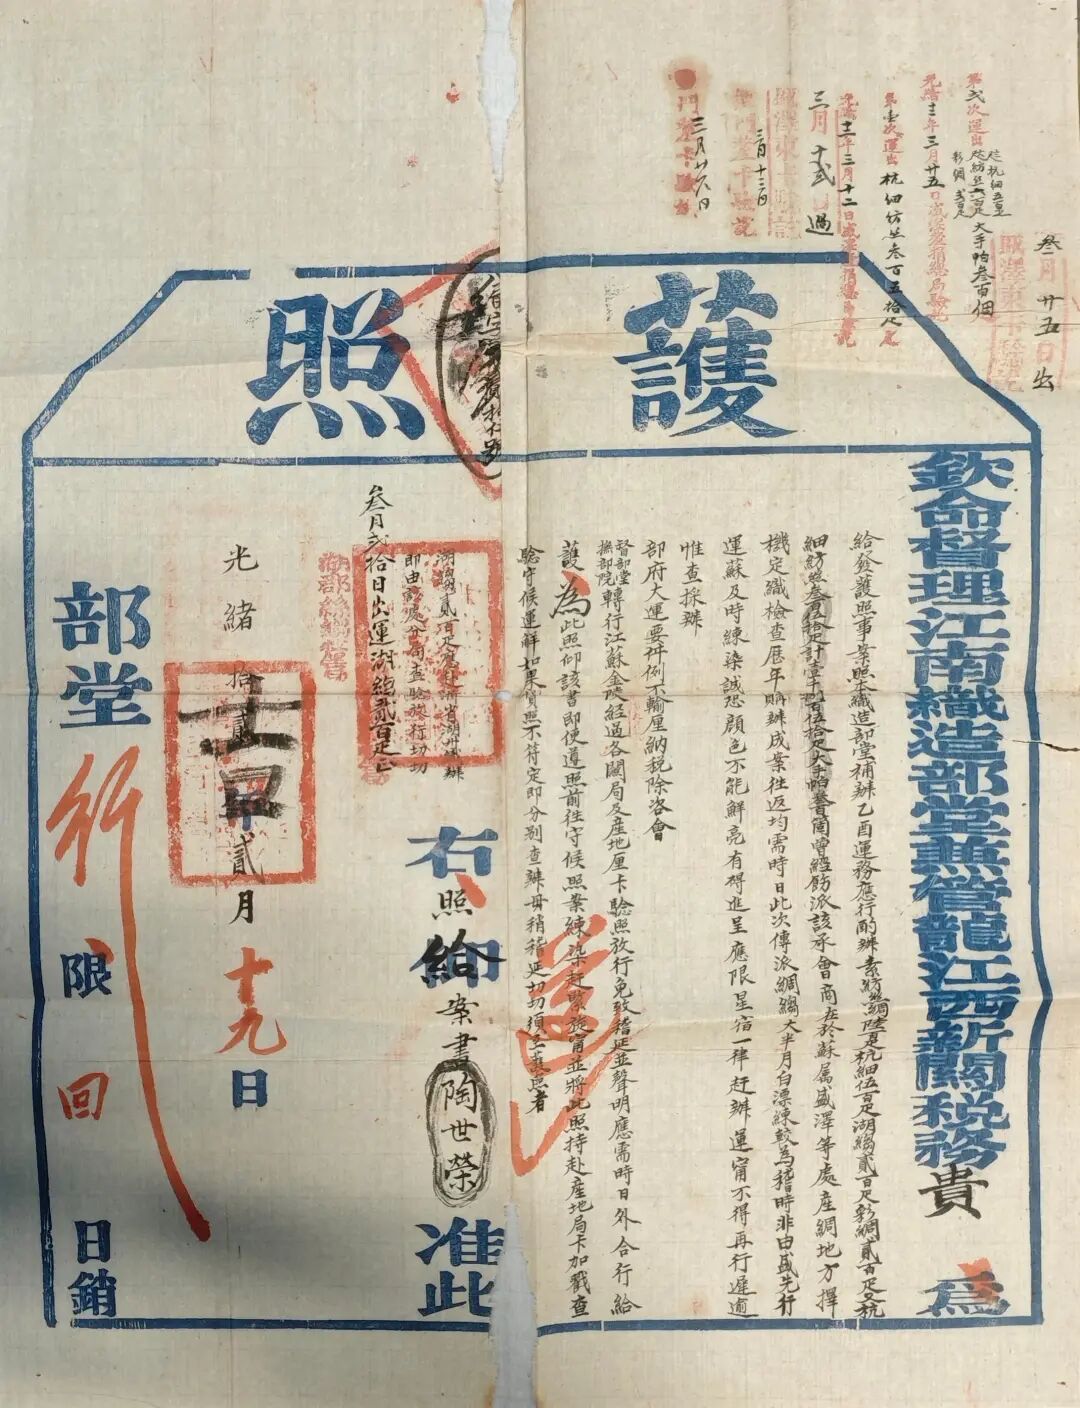 護照
欽命督理江南織造部堂兼管龍江西新關税務貴 為
給發護照事案照本織造部堂補辦乙酉運務應行酌辦素紡絲綢陸百疋杭細伍百疋湖縐貳百疋彩綢貳百疋又杭
細紡絲叁百伍拾疋計壹千捌百伍拾疋大手帕叁百箇曾經飭派該承會商在於蘇属盛澤等處産綢地方擇
機定織檢查歷年購辦成案往返均需時日此次傳派綢縐大半月白漂練較為稽時非由盛先行
運蘇及時練染誠恐顔色不能鮮亮有碍進呈應限星宿一律赶辦運甯不得再行遲逾
惟查採辦
部府大運要件例不輸厘納税除咨會
督部堂
撫部院
轉行江蘇金陵經過各關局及産地厘卡驗照放行免致稽延並聲明應需時日外合行給
護為此照仰該書即便遵照前往守候照案練染赶緊旋甯並將此照持赴産地局卡加戳查
驗守候運解如果貨照不符定即分别查辦毋稍稽延切切須至護照者
右照給案書陶世榮
准此
湖縐貳百疋應赴浙省湖州採辦
即由該處分局查驗放行切切
叁月貳拾日出運湖縐貳百疋正
光緒拾貳年貳月十九日
部堂行
限 回 日銷
叁月廿五日出
第弍次運出
杭細五百疋
紡絲六百疋
彩綢弍百疋
大手帕叁百個
光緒十二年三月廿五日
第壹次運出杭細紡絲叁百五拾疋
光緒十二年三月十二日
三月十弍日過
三月十三日
三月廿六日